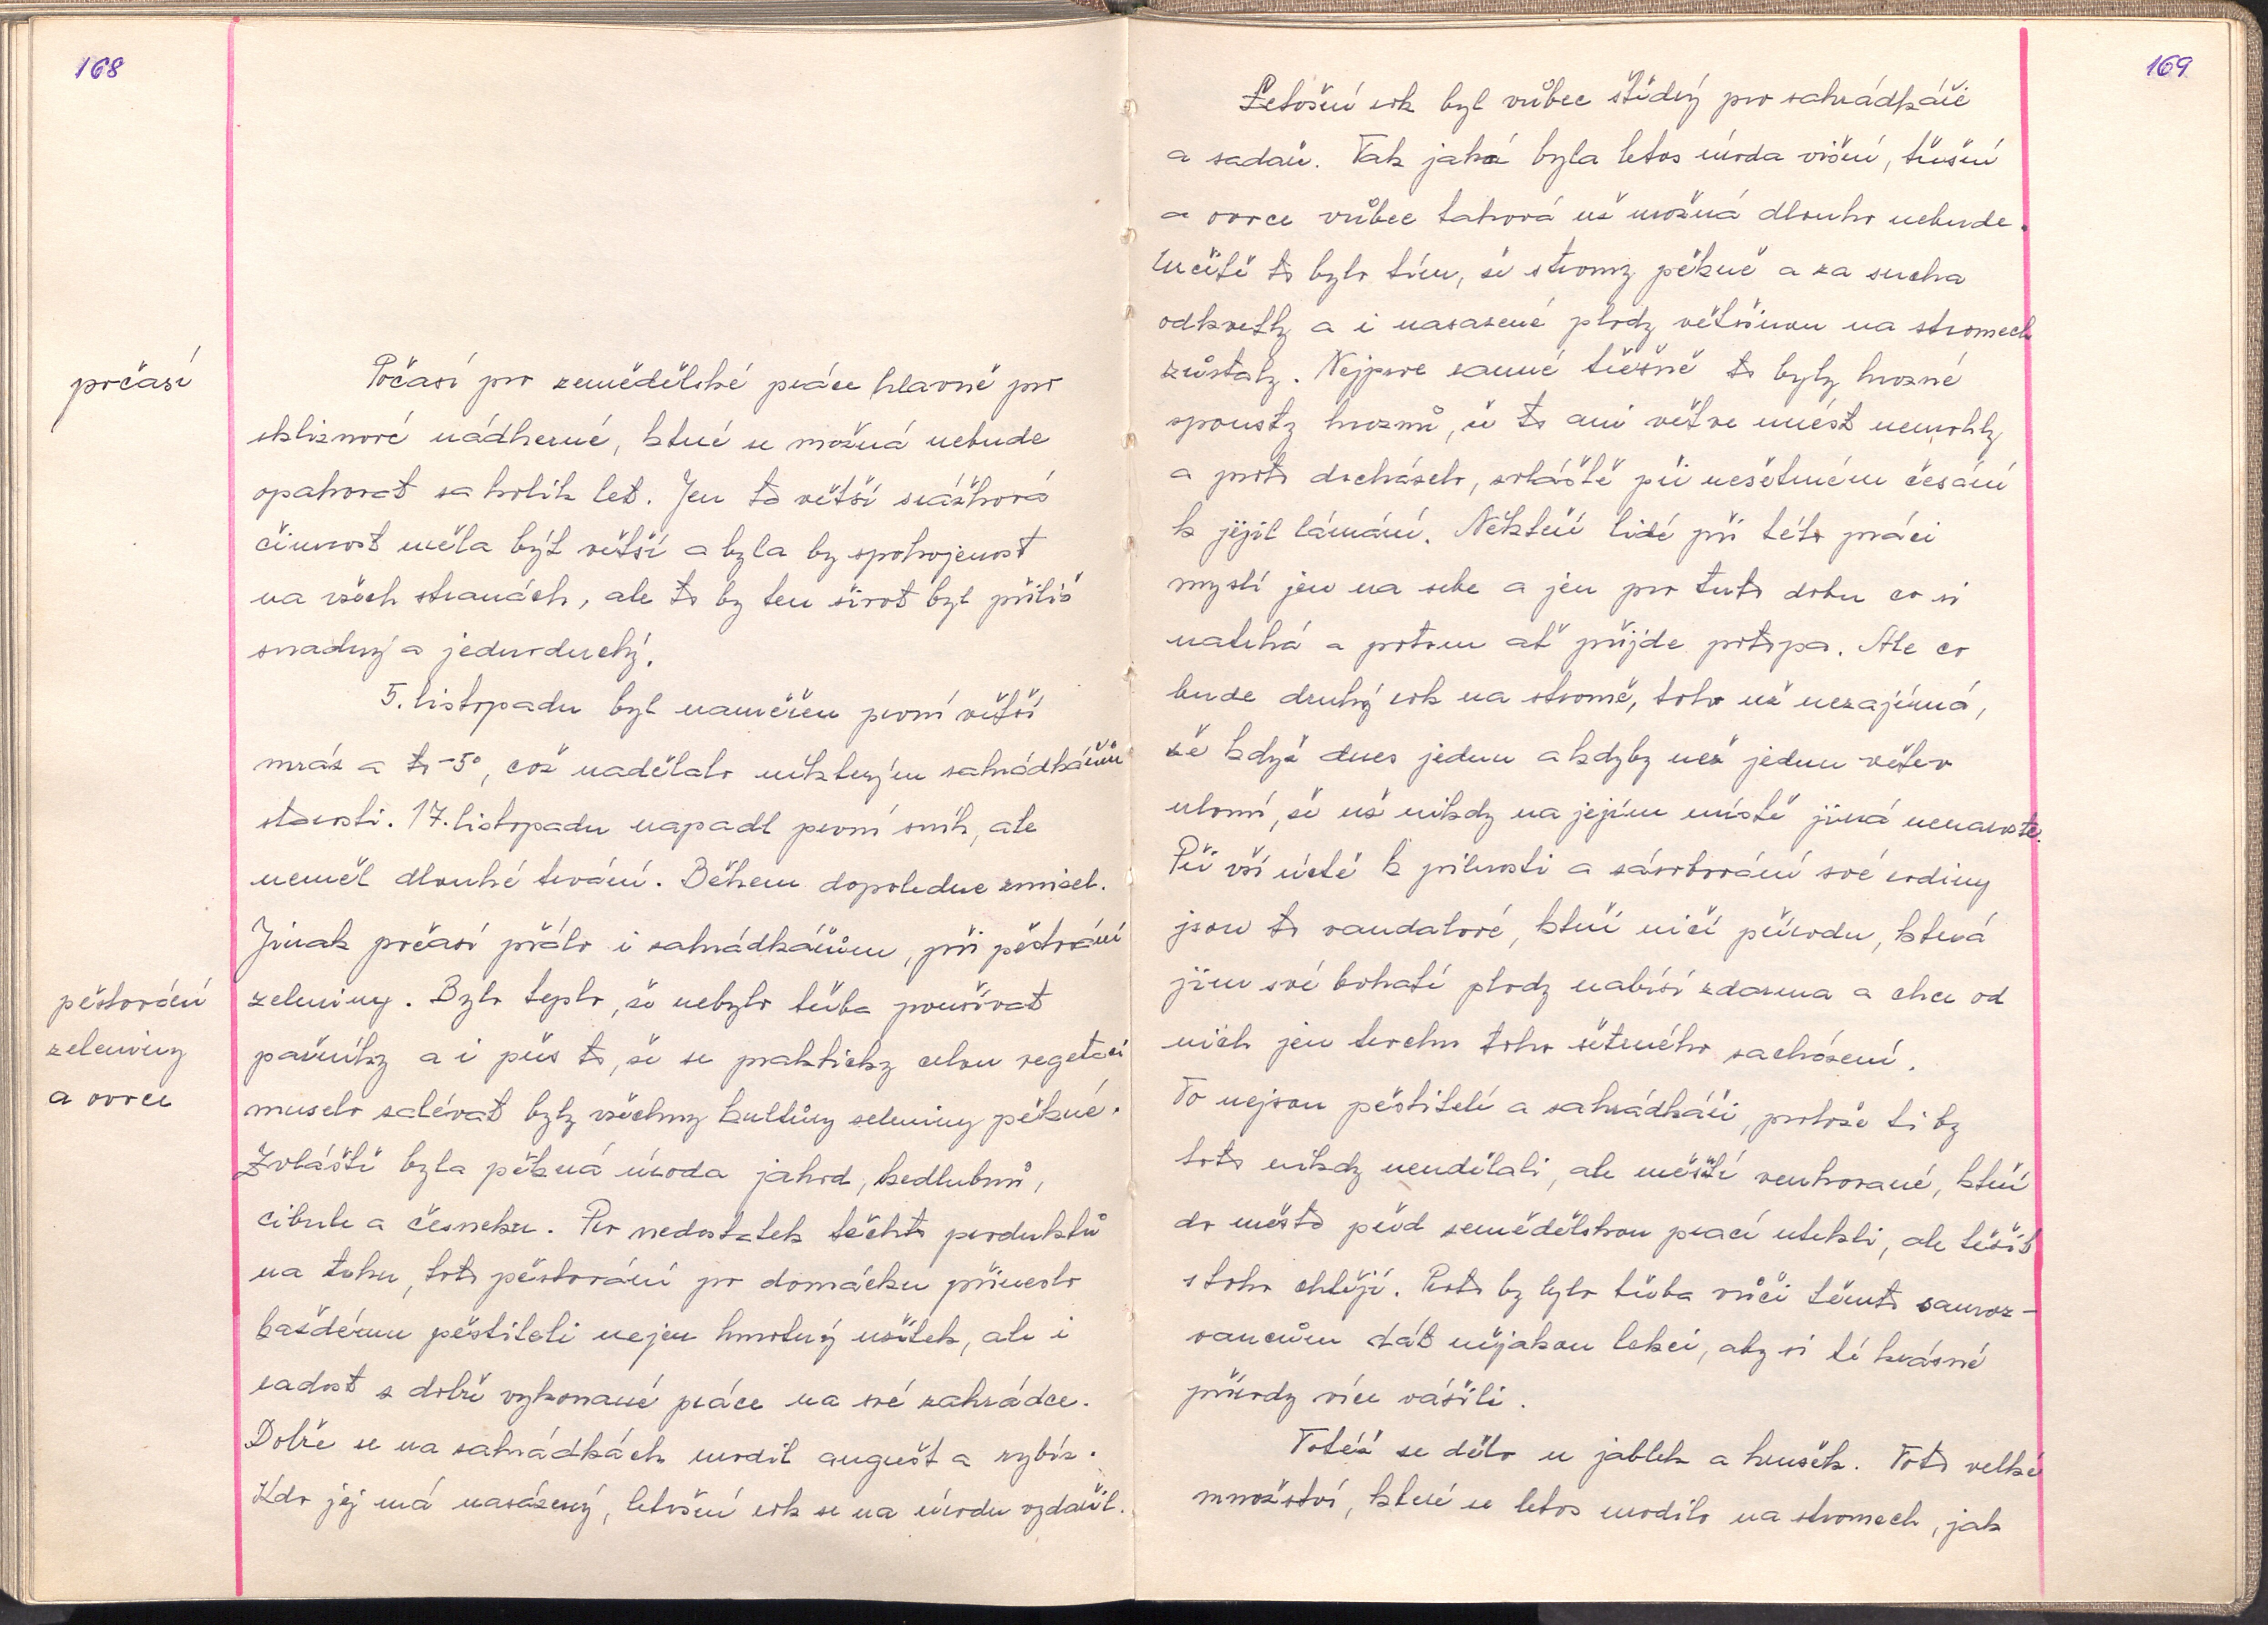 168
počasí
Počasí pro zemědělské práce hlavně pro
sklizňové nádherné, které se možná nebude
opakovat za kolik let. Jen ta větší srážková
činnost měla být větší a byla by spokojenost
na všech stranách, ale to by ten život byl příliš
snadný a jednoduchý.
5. listopadu byl naměřen první větší
mráz a to -5°, což nadělalo některým zahrádkářům
starosti. 17. listopadu napadl první sníh, ale
neměl dlouhé trvání. Během dopoledne zmizel.
Jinak počasí přálo i zahrádkářům, při pěstování
pěstování
zeleniny
a ovoce
zeleniny. Bylo teplo, že nebylo třeba používat
pařníky a i přes to, že se prakticky celou vegetaci
muselo zalévat byly všechny kultury zeleniny pěkné.
Zvláště byla pěkná úroda jahod, kedlubnů,
cibule a česneku. Pro nedostatek těchto produktů
na trhu, toto pěstování po domácku přineslo
každému pěstiteli nejen hmotný užitek, ale i
radost z dobře vykonané práce na své zahrádce.
Dobře se na zahrádkách urodil angrešt a rybíz.
Kdo jej má nasázený, letošní rok se na úrodu vzdařil.
169
Letošní rok byl vůbec štědrý pro zahrádkáře
a sadaře. Tak jaká byla letos úroda višní, třešní
a ovoce vůbec taková už možná dlouho nebude.
Určitě to bylo tím, že stromy pěkně a za sucha
odkvetly a i nasazené plody většinou na stromech
zůstaly. Nejprve ranné třešně to byly hrozné
spousty hroznů, že to ani větve unést nemohly
a proto docházelo, zvláště při nešetrném česání
k jejil lámání. Někteří lidé při této práci
myslí jen na sebe a jen pro tuto dobu co si
natrhá a potom ať přijde potopa. Ale co
bude druhý rok na stromě, toho už nezajímá,
že když dnes jednu a kdyby než jednu větev
ulomí, že už nikdy na jejím místě jiná nenaroste.
Při vší úctě k pilnosti a zásobování své rodiny
jsou to vandalové, kteří ničí přírodu, která
jim své bohaté plody nabízí zdarma a chce od
nich jen trochu toho šetrného zacházení.
To nejsou pěstitelé a zahrádkáři, protože ti by
toto nikdy neudělali, ale měští venkované, kteří
do města před zemědělskou prací utekli, ale těžit
z toho chtějí. Proto by bylo třeba vůči těmto samoz-
vancům dát nějakou lekci, aby si té krásné
přírody více vážili.
Totéž se dělo u jablek a hrušek. Toto velké
množství, které se letos urodilo na stromech, jak